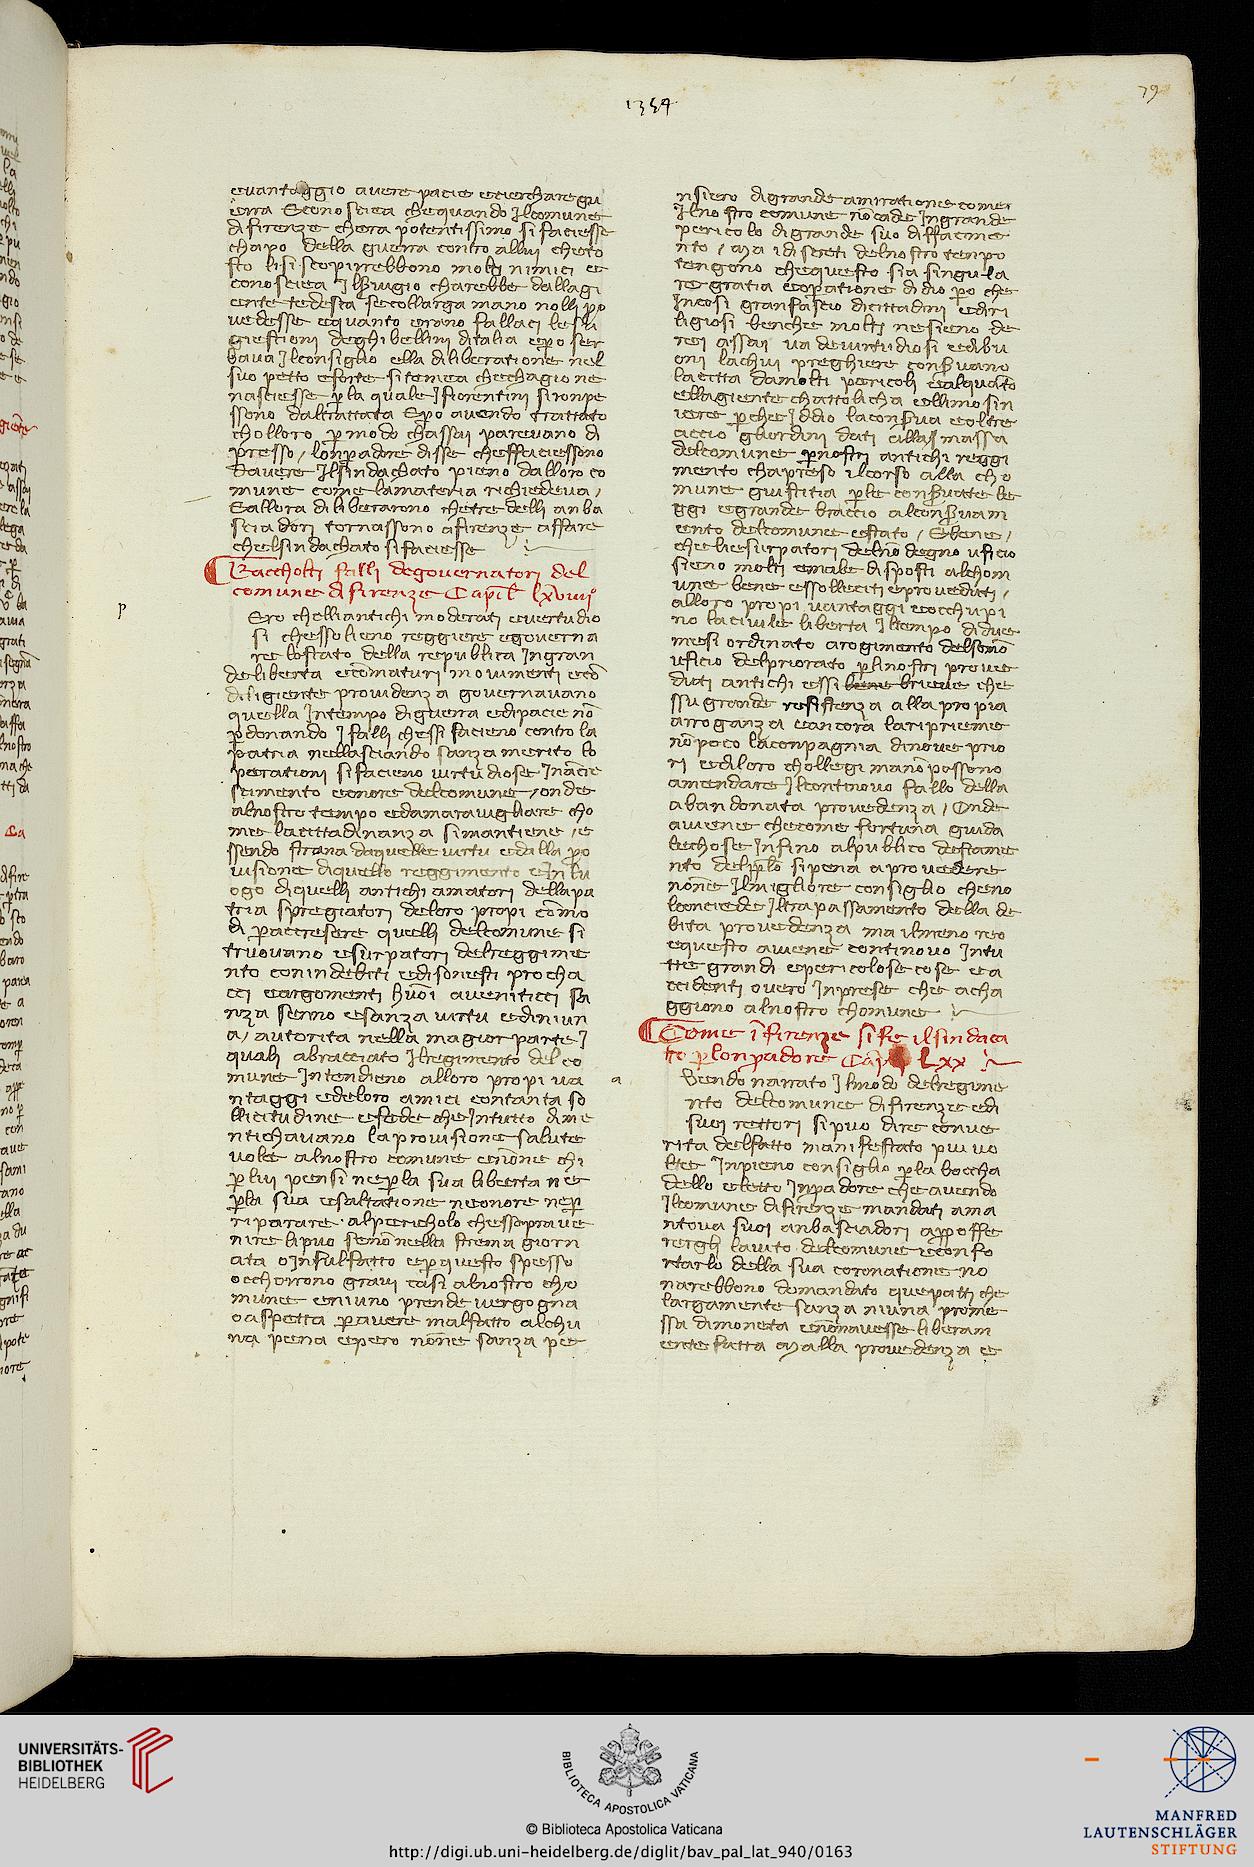 1354
79
e vantaggio avere pacie e cierchare gu
erra E conosciea che quando il comune
di firenze chera potentissimo si faciesse
chapo della guerra contro allui che to
sto li si scopirrebbono molti nimici e
conosciea il Brugio charebbe dalla gi
ente tedesca se collarga mano nolli pro
vedesse e quanto erano fallaci le su
giestioni de ghibellini ditalia e pero ser
bava il consiglio ella diliberatione nel
suo petto e forte si temea che chagione
nasciesse per la quale i fiorentini si ronpe
ssono dal trattata E pero avendo trattato
cholloro per modo chassai parevano di
presso / lonpadore disse cheffaciessono
davere il sindachato pieno dalloro co
mune come la materia richiedeva /
E allora diliberarono che tre delli anba
sciadori tornassono a firenze affare
che l sindachato si faciesse
Raccholti falli de governatori del
comune di firenze Capitolo lxviiii
p
Ero chelli antichi moderati e vertudio
si chessolieno reggiere e governa
re lo stato della republica in gran
de liberta e con maturi movimenti e con
diligiente providenza governavano
quella in tempo di guera e di pacie non
perdonando i falli chessi facieno contro la
patria ne llasciando sanza merito lo
peratiuni si facieno virtudiose in acre
scimento e onore del comune / onde
al nostro tempo e da maravigliare cho
me la cittadinanza si mantiene / e
ssendo strana da quelle virtu e dalla pro
visione di quello reggimento e in lu
ogo di quelli antichi amatori della pa
tria spregiatori de loro propi como
di per accresere quelli del comune si
truovano e surpatori del reggime
nto con indebiti e disonesti procha
cci e argomenti huoi aveniticci sa
nza senno e sanza virtu e di niun
a / autorita nella magior parte i
quali abracciato il regimento del co
mune intendieno alloro propi va
ntaggi e de loro amici con tanta so
llicitudine e fede che in tutto dime
ntichavano la provisione salute
vole al nostro comune e non e chi
per lui pensi ne per la sua liberta ne
per la sua esaltatione ne onore ne per
riparare al pericholo chessopra ve
nire li puo se non nella strema giorn
ata o in sul fatto e per questo spesso
occhorrono gravi casi al nostro cho
mune e niuno prende vergogna
o aspetta per avere mal fatto alchu
na pena e pero none sanza pe
nsiero di grande amiratione come
il nostro comune non cade in grande
pericolo di grande suo diffacime
nto / Ma i discreti del nostro tenpo
tengono che questo sia singula
re gratia e operatione di dio pero che
in cosi gran fascio di cittadini e di ri
ligiosi benche molti ne sieno de
rei assai va de virtudiosi e di bu
oni la chui preghiere conservano
la citta da molti pericoli e alquato
e lla giente chattolicha e llimosin
iere per che iddio la conserva e oltre
accio gli ordini dati alla massa
del comune per nostri antichi reggi
mento cha preso il corso alla cho
mune giustitia per le conservate le
ggi e grande braccio al conservam
ento del comune e stato / E bene /
che lle surpatori del no degno uficio
sieno molti e male disposti al chom
une bene e ssolleciti e proveduti /
alloro propi vantaggi e occhupi
no la civile liberta il tempo di due
mesi ordinato a rogimento del sommo
uficio del priorato per li nostri prove
duti antichi e ssi bene brieve che
ssu grande resistenza alla propia
arroganza e ancora la ripriemе
non poco la conpagnia di nove prio
ri e di loro chollegi ma non possono
amendare il continovo fallo della
abandonata provedenza / Onde
aviene che come fortuna guida
le chose infino al publico desiame
nto del popolo si pena a provedere
none il migliore consiglio che no
lonciede il trapassamento della de
bita provedenza ma il meno reo
e questo aviene continovo in tu
tte grandi e pericolose cose e a
ccidenti overo inprese che acha
ggiono al nostro chomune
Come in firenze si fe il sindaca
to per lonpadore Cap LXX
a
Vendo narrato il modo del regime
nto del comune di firenze e di
suoi rettori si puo dire con ve
rita del fatto manifestato piu vo
lte in pieno consiglio per la boccha
dello eletto inpadore che avendo
il comune di firenze mandati a ma
ntova suoi anbasciadori a pp offe
rergli laiuto del comune e confo
rtarlo della sua coronatione no
narebbono domandato que patti che
largamente sanza niuna prome
ssa di moneta e non avesse liberam
ente fatta Ma lla provedenza e
UNIVERSITÄTS-
BIBLIOTHEK
HEIDELBERG
BIBLIOTECA APOSTOLICA VATICANA
© Biblioteca Apostolica Vaticana
http://digi.ub.uni-heidelberg.de/diglit/bav_pal_lat_940/0163
MANFRED
LAUTENSCHLÄGER
STIFTUNG